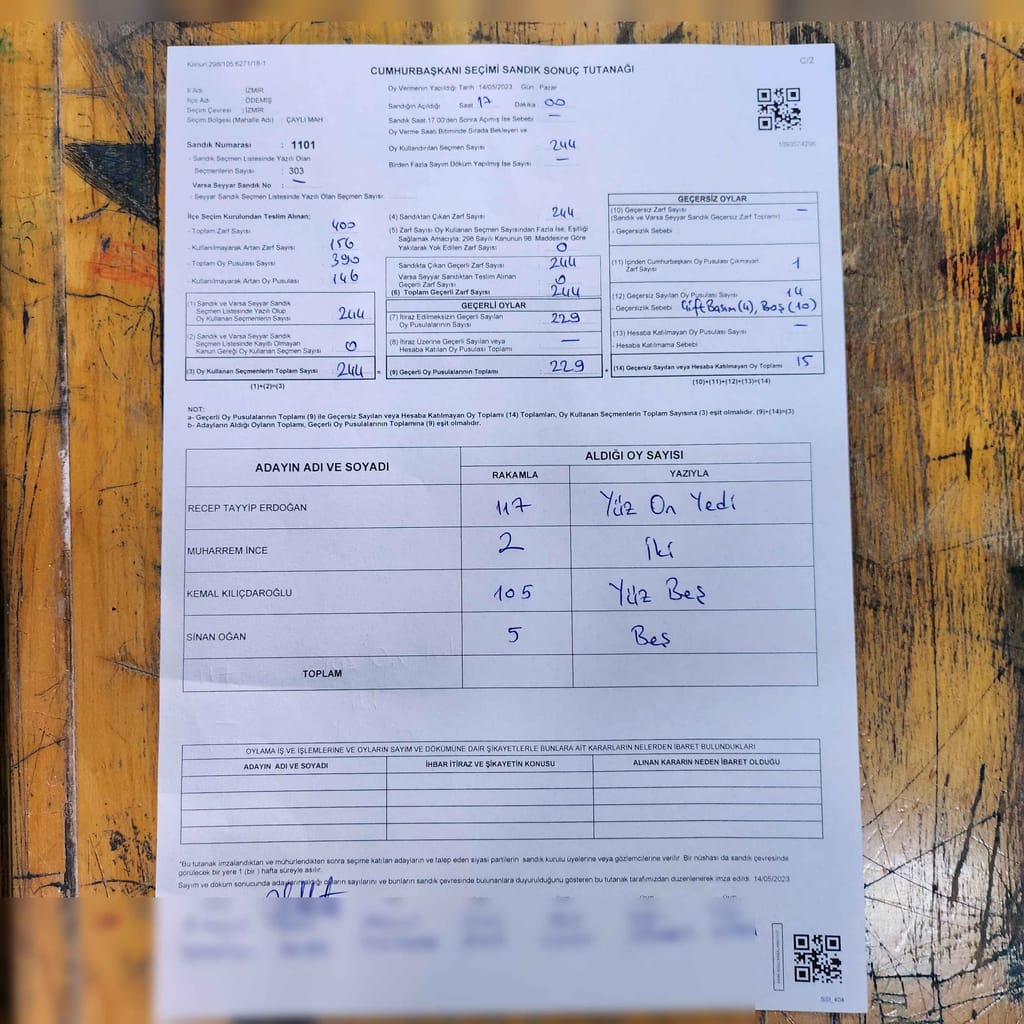 Kanun:298/105;6271/18-1
C/2
CUMHURBAŞKANI SEÇİMİ SANDIK SONUÇ TUTANAĞI
İl Adı : İZMİR
İlçe Adı : ÖDEMİŞ
Seçim Çevresi : İZMİR
Seçim Bölgesi (Mahalle Adı) : ÇAYLI MAH
Sandık Numarası : 1101
- Sandık Seçmen Listesinde Yazılı Olan
Seçmenlerin Sayısı : 303
Varsa Seyyar Sandık No : —
- Seyyar Sandık Seçmen Listesinde Yazılı Olan Seçmen Sayısı:
Oy Vermenin Yapıldığı Tarih 14/05/2023 Gün Pazar
Sandığın Açıldığı Saat 17 Dakika 00
Sandık Saat 17.00'den Sonra Açılmış İse Sebebi —
Oy Verme Saati Bitiminde Sırada Bekleyen ve
Oy Kullandırılan Seçmen Sayısı 244
Birden Fazla Sayım Döküm Yapılmış İse Sayısı —
İlçe Seçim Kurulundan Teslim Alınan;
- Toplam Zarf Sayısı 400
- Kullanılmayarak Artan Zarf Sayısı 156
- Toplam Oy Pusulası Sayısı 390
- Kullanılmayarak Artan Oy Pusulası 146
(1) Sandık ve Varsa Seyyar Sandık
Seçmen Listesinde Yazılı Olup
Oy Kullanan Seçmenlerin Sayısı 244
(2) Sandık ve Varsa Seyyar Sandık
Seçmen Listesinde Kayıtlı Olmayan
Kanun Gereği Oy Kullanan Seçmen Sayısı 0
(3) Oy Kullanan Seçmenlerin Toplam Sayısı 244 =
(1)+(2)=(3)
(4) Sandıktan Çıkan Zarf Sayısı 244
(5) Zarf Sayısı Oy Kullanan Seçmen Sayısından Fazla İse, Eşitliği
Sağlamak Amacıyla; 298 Sayılı Kanunun 98. Maddesine Göre
Yakılarak Yok Edilen Zarf Sayısı 0
Sandıkta Çıkan Geçerli Zarf Sayısı 244
Varsa Seyyar Sandıktan Teslim Alınan
Geçerli Zarf Sayısı 0
(6) Toplam Geçerli Zarf Sayısı 244
GEÇERLİ OYLAR
(7) İtiraz Edilmeksizin Geçerli Sayılan
Oy Pusulalarının Sayısı 229
(8) İtiraz Üzerine Geçerli Sayılan veya
Hesaba Katılan Oy Pusulası Toplamı —
(9) Geçerli Oy Pusulalarının Toplamı 229 +
GEÇERSİZ OYLAR
(10) Geçersiz Zarf Sayısı —
(Sandık ve Varsa Seyyar Sandık Geçersiz Zarf Toplamı)
- Geçersizlik Sebebi
(11) İçinden Cumhurbaşkanı Oy Pusulası Çıkmayan
Zarf Sayısı 1
(12) Geçersiz Sayılan Oy Pusulası Sayısı 14
- Geçersizlik Sebebi Çift Basım (4), Boş (10)
(13) Hesaba Katılmayan Oy Pusulası Sayısı —
- Hesaba Katılmama Sebebi
(14) Geçersiz Sayılan veya Hesaba Katılmayan Oy Toplamı 15
(10)+(11)+(12)+(13)=(14)
NOT:
a- Geçerli Oy Pusulalarının Toplamı (9) ile Geçersiz Sayılan veya Hesaba Katılmayan Oy Toplamı (14) Toplamları, Oy Kullanan Seçmenlerin Toplam Sayısına (3) eşit olmalıdır. (9)+(14)=(3)
b- Adayların Aldığı Oyların Toplamı, Geçerli Oy Pusulalarının Toplamına (9) eşit olmalıdır.
ADAYIN ADI VE SOYADI ALDIĞI OY SAYISI
RAKAMLA YAZIYLA
RECEP TAYYİP ERDOĞAN 117 Yüz On Yedi
MUHARREM İNCE 2 İki
KEMAL KILIÇDAROĞLU 105 Yüz Beş
SİNAN OĞAN 5 Beş
TOPLAM
OYLAMA İŞ VE İŞLEMLERİNE VE OYLARIN SAYIM VE DÖKÜMÜNE DAİR ŞİKAYETLERLE BUNLARA AİT KARARLARIN NELERDEN İBARET BULUNDUKLARI
ADAYIN ADI VE SOYADI İHBAR İTİRAZ VE ŞİKAYETİN KONUSU ALINAN KARARIN NEDEN İBARET OLDUĞU
*Bu tutanak imzalandıktan ve mühürlendikten sonra seçime katılan adayların ve talep eden siyasi partilerin sandık kurulu üyelerine veya gözlemcilerine verilir. Bir nüshası da sandık çevresinde
görülecek bir yere 1 (bir) hafta süreyle asılır.
Sayım ve döküm sonucunda adayların aldığı oyların sayılarını ve bunların sandık çevresinde bulunanlara duyurulduğunu gösteren bu tutanak tarafımızdan düzenlenerek imza edildi. 14/05/2023